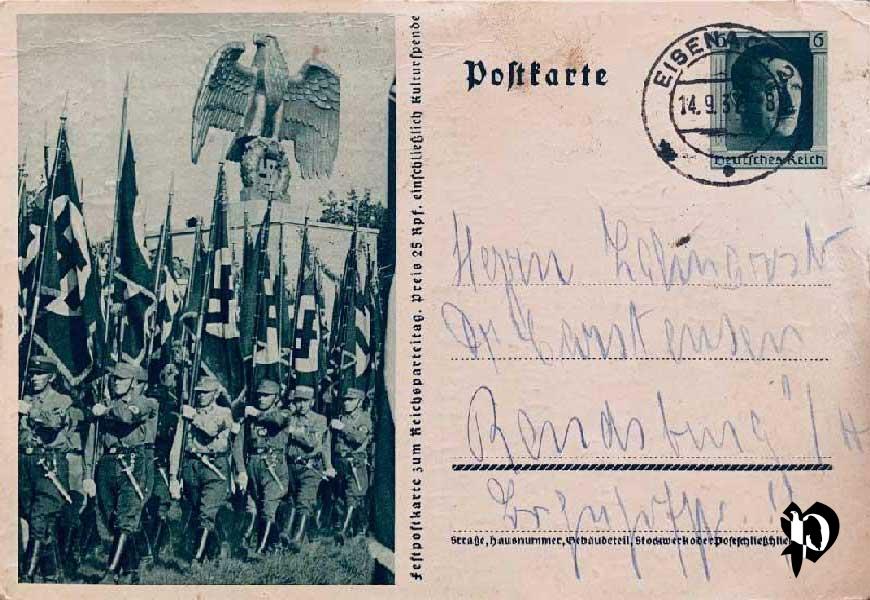 Festpostkarte zum Reichsparteitag. Preis 25 Rpf. einschließlich Kulturspende
Postkarte
EISENACH 2
14.9.3 8
6 6
Deutsches Reich
Herrn Zahnarzt
Dr Carstensen
Rendsburg /H
Straße, Hausnummer, Gebäudeteil, Stockwerk oder Postschließf
P